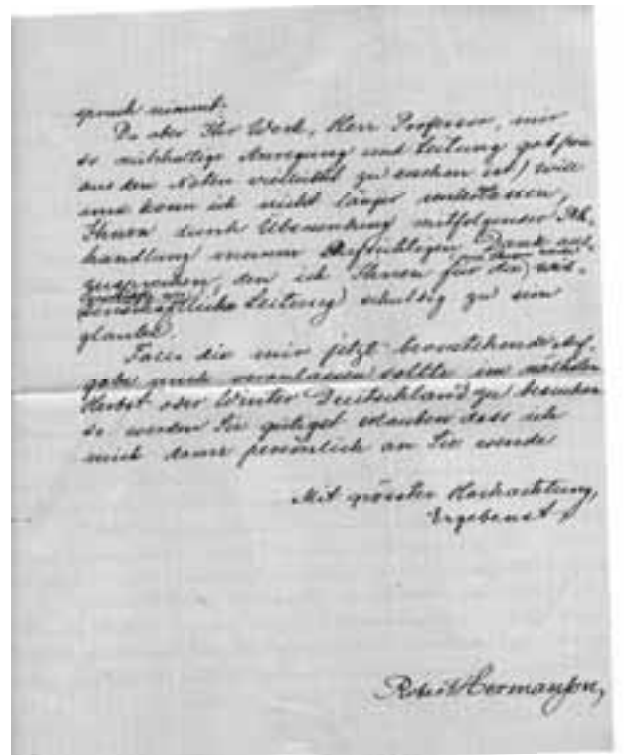 spruch nimmt.
Da aber Ihr Werk, Herr Professor, mir
so nachhaltige Anregung und Leitung gab (wie
aus den Noten vielleicht zu ersehen ist) will
und kann ich nicht länger unterlassen,
Ihnen durch Übersendung mitfolgender Ab-
handlung meinen Aufrichtigen Dank aus-
zusprechen, den ich Ihnen für die wis-
senschaftliche Leitung schuldig zu sein
glaube.
Falls die mir jetzt bevorstehende Auf-
gabe mich veranlassen sollte im nächsten
Herbst oder Winter Deutschland zu besuchen
so werden Sie gütigst erlauben dass ich
mich dann persönlich an Sie wende
Mit grösster Hochachtung,
Ergebenst
Robert Hermansson,